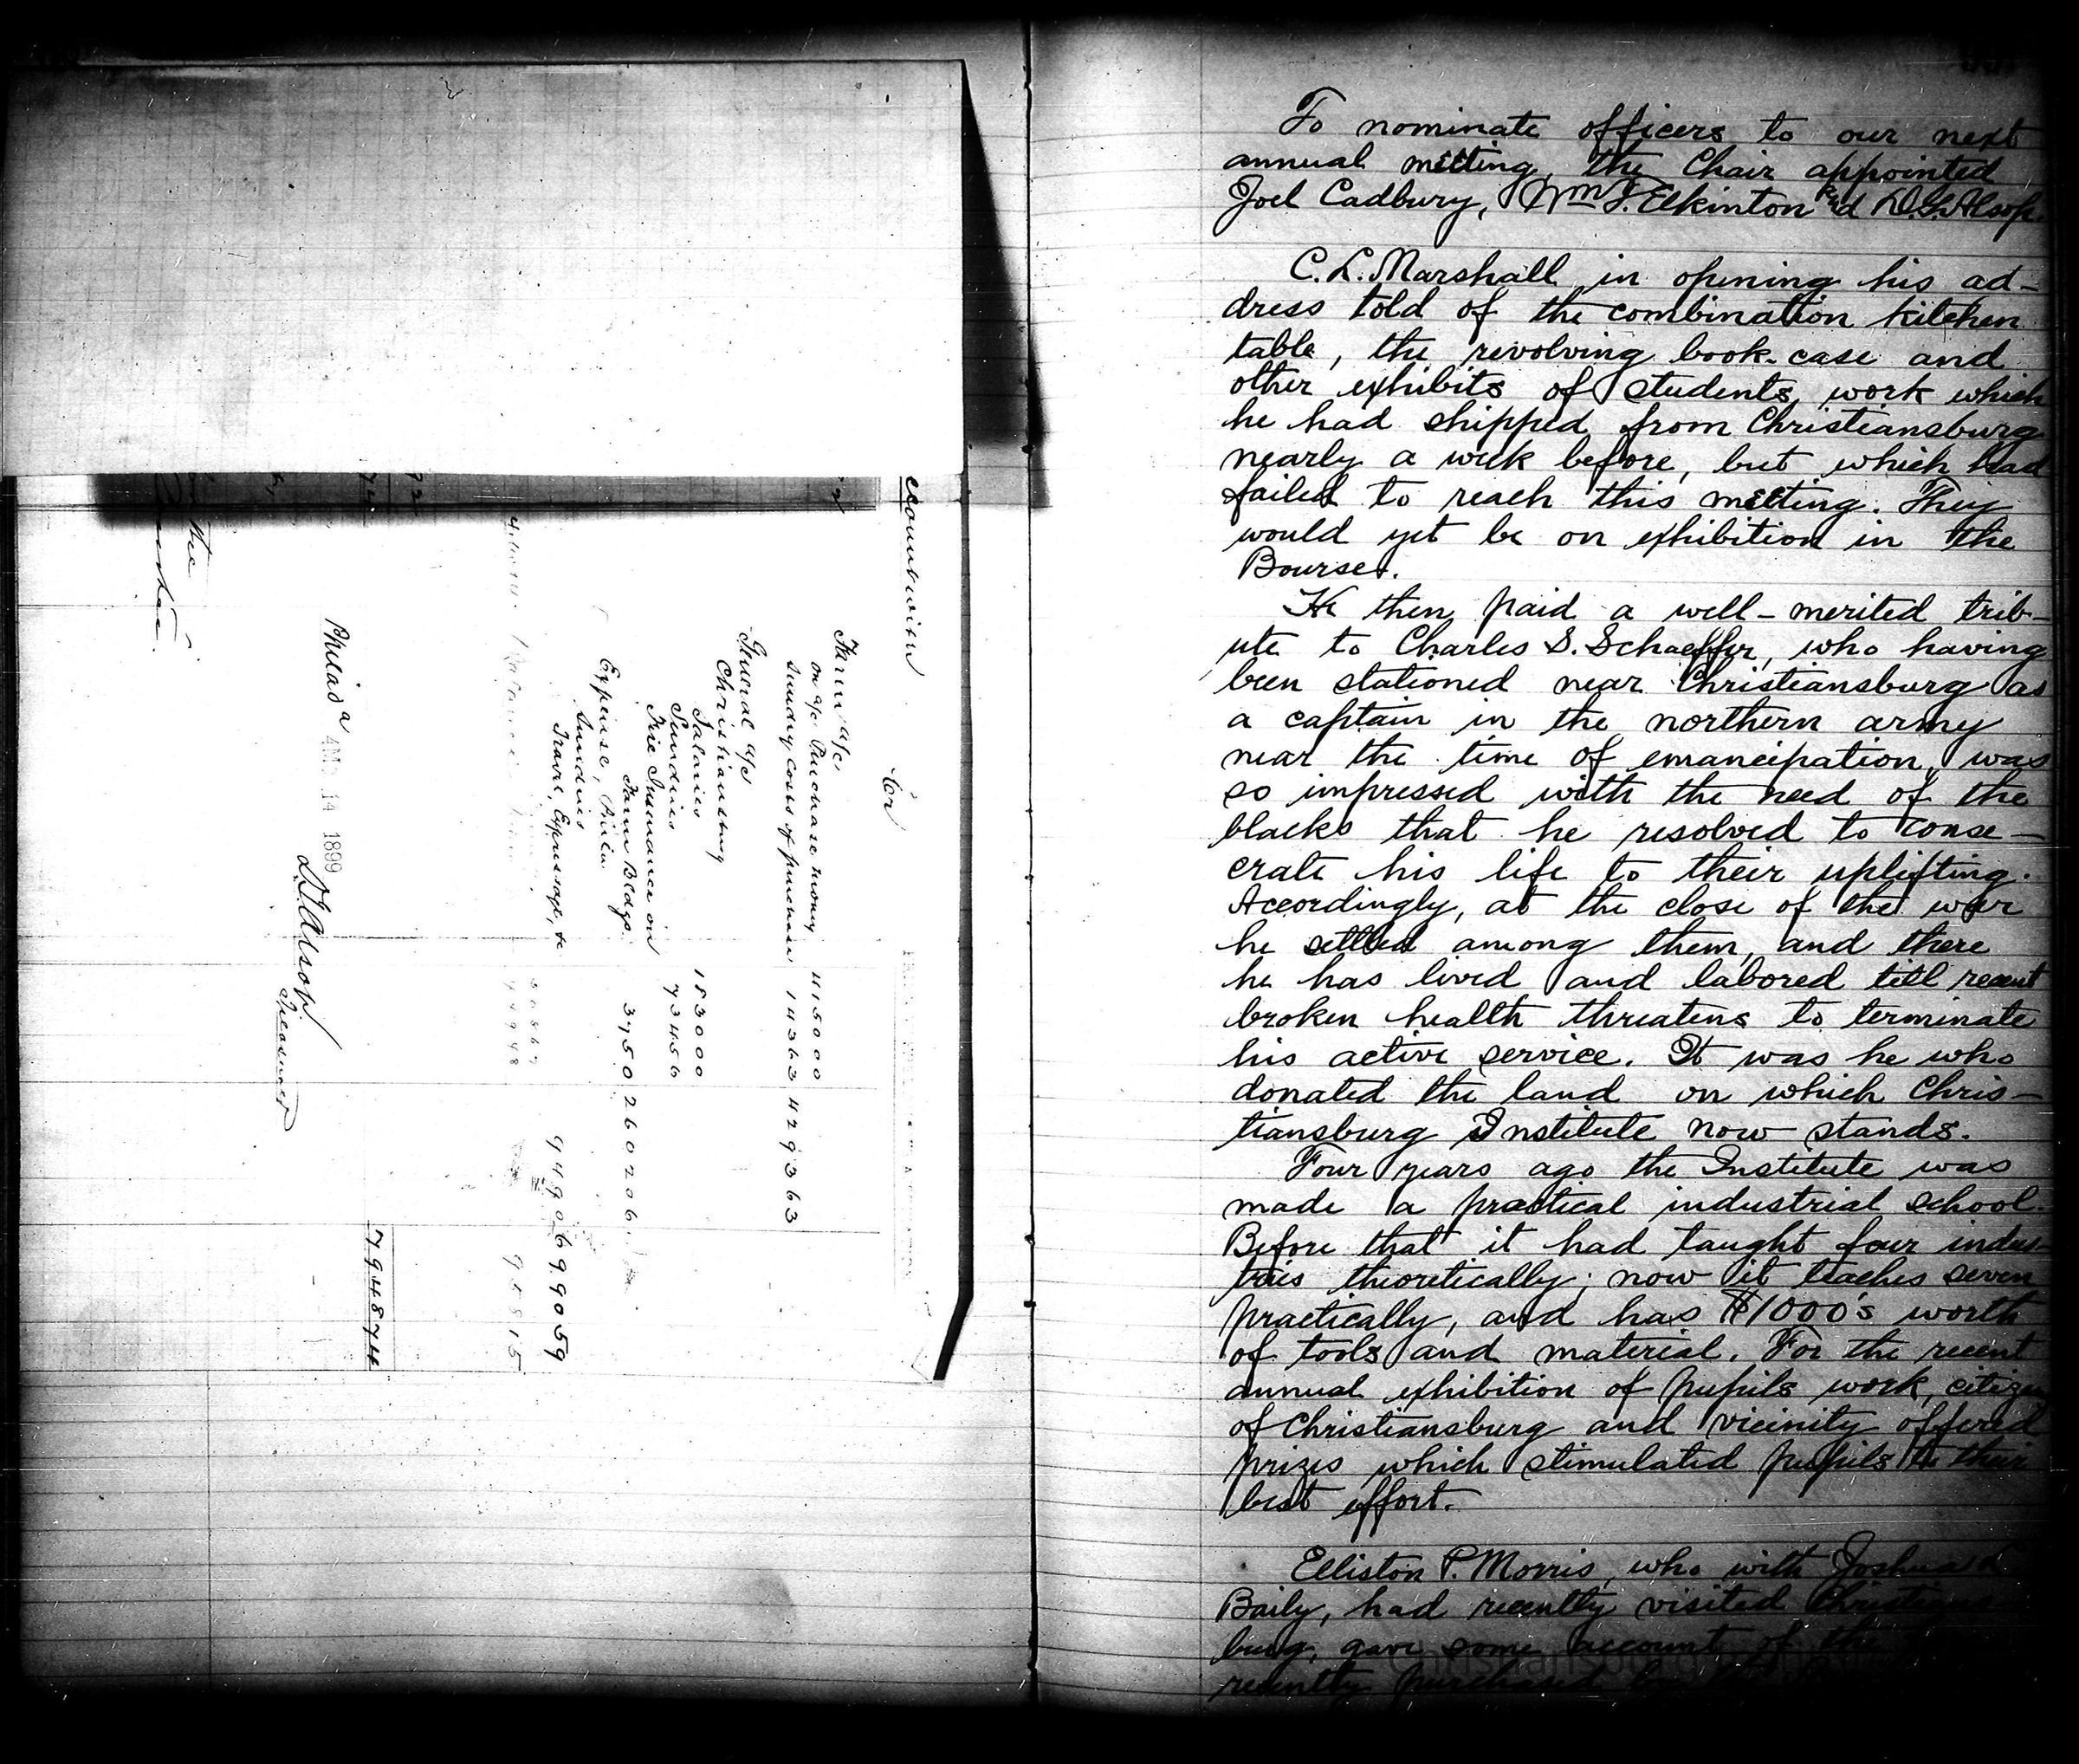 account with
Cr
Farm a/c,
on a/c Purchase money 4150 00
Sundry costs of purchase 143 63 4293 63
General a/c
Christiansburg
Salaries 1830 00
Sundries 734 56
Fire Insurance on
Farm Bldgs. 37 50 2602 06
Expense, Phila.
Sundries
Travel, Expressage, &c 94 90 2699 0 59
7948 74
Philada 4Mo. 14 1899
D.G. Alsop
Treasurer
To nominate officers to our next
annual meeting, the Chair appointed
Joel Cadbury, Wm T. Elkinton and D.G. Alsop.
C. L. Marshall in opening his ad-
dress told of the combination kitchen
table, the revolving book-case and
other exhibits of students, work which
he had shipped from Christiansburg
nearly a week before, but which had
failed to reach this meeting. They
would yet be on exhibition in the
Bourse.
He then paid a well-merited trib-
ute to Charles S. Schaeffer, who having
been stationed near Christiansburg as
a captain in the northern army
near the time of emancipation, was
so impressed with the need of the
blacks that he resolved to conse-
crate his life to their uplifting.
Accordingly, at the close of the war
he settled among them, and there
he has lived and labored till recent
broken health threatens to terminate
his active service. It was he who
donated the land on which Chris-
tiansburg Institute now stands.
Four years ago the Institute was
made a practical industrial school.
Before that it had taught four indus-
tries theoretically; now it teaches seven
practically, and has $1000's worth
of tools and material. For the recent
annual exhibition of pupils work, citizens
of Christiansburg and vicinity offered
prizes which stimulated pupils to their
best effort.
Elliston P. Morris, who with Joshua L.
Baily, had recently visited Christians-
burg, gave some account of the
recently purchased by